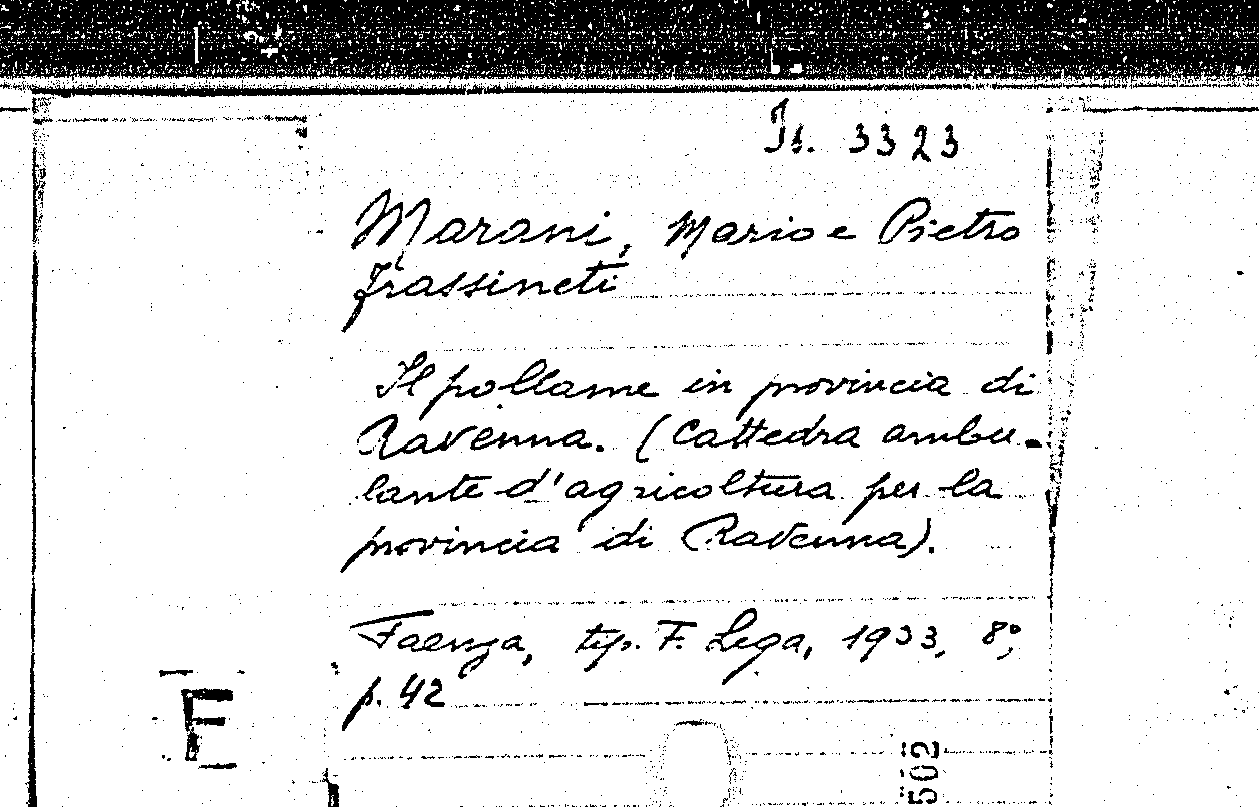 Is. 3323
Marani, Mario e Pietro
Frassineti
Il pollame in provincia di
Ravenna. (Cattedra ambu-
lante d'agricoltura per la
provincia di Ravenna).
Faenza, tip. F. Lega, 1933, 8°,
p. 42
E
502